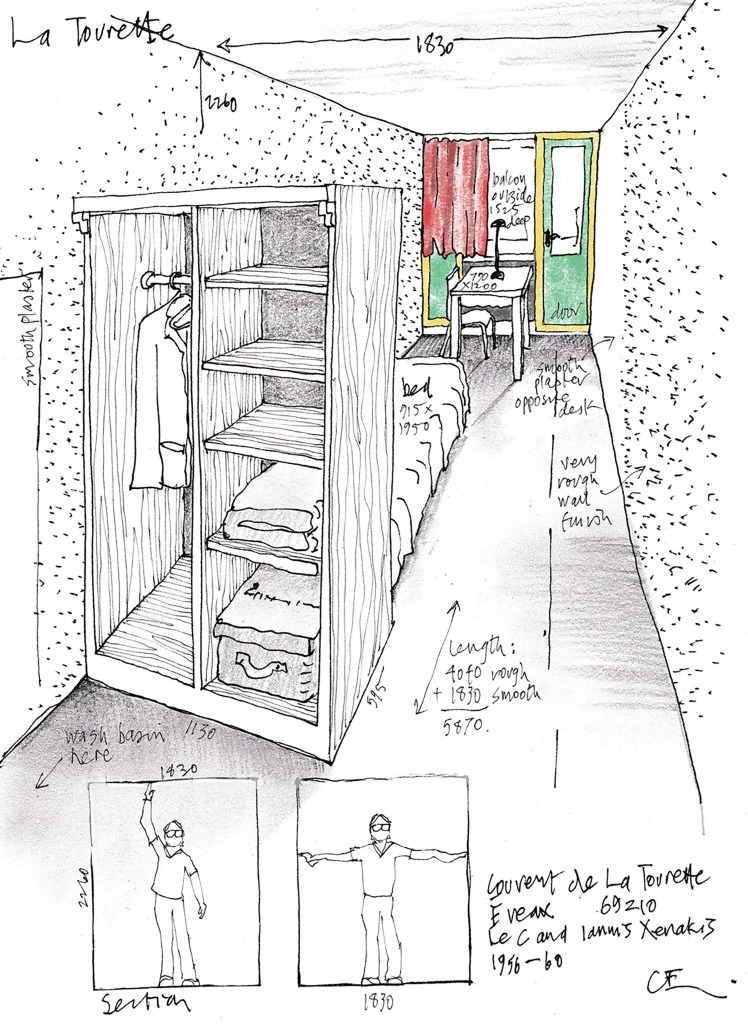 La Tourette
1830
2260
balcony
outside
1525
deep
790
x1200
door
smooth plaster
bed
915x
1950
smooth
plaster
opposite
desk
very
rough
wall
finish
length:
4040 rough
+ 1830 smooth
5870.
595
1130
wash basin
here
1830
2260
Section
1830
Couvent de La Tourette
Eveax 69210
Le C and Iannis Xenakis
1956-60
CF